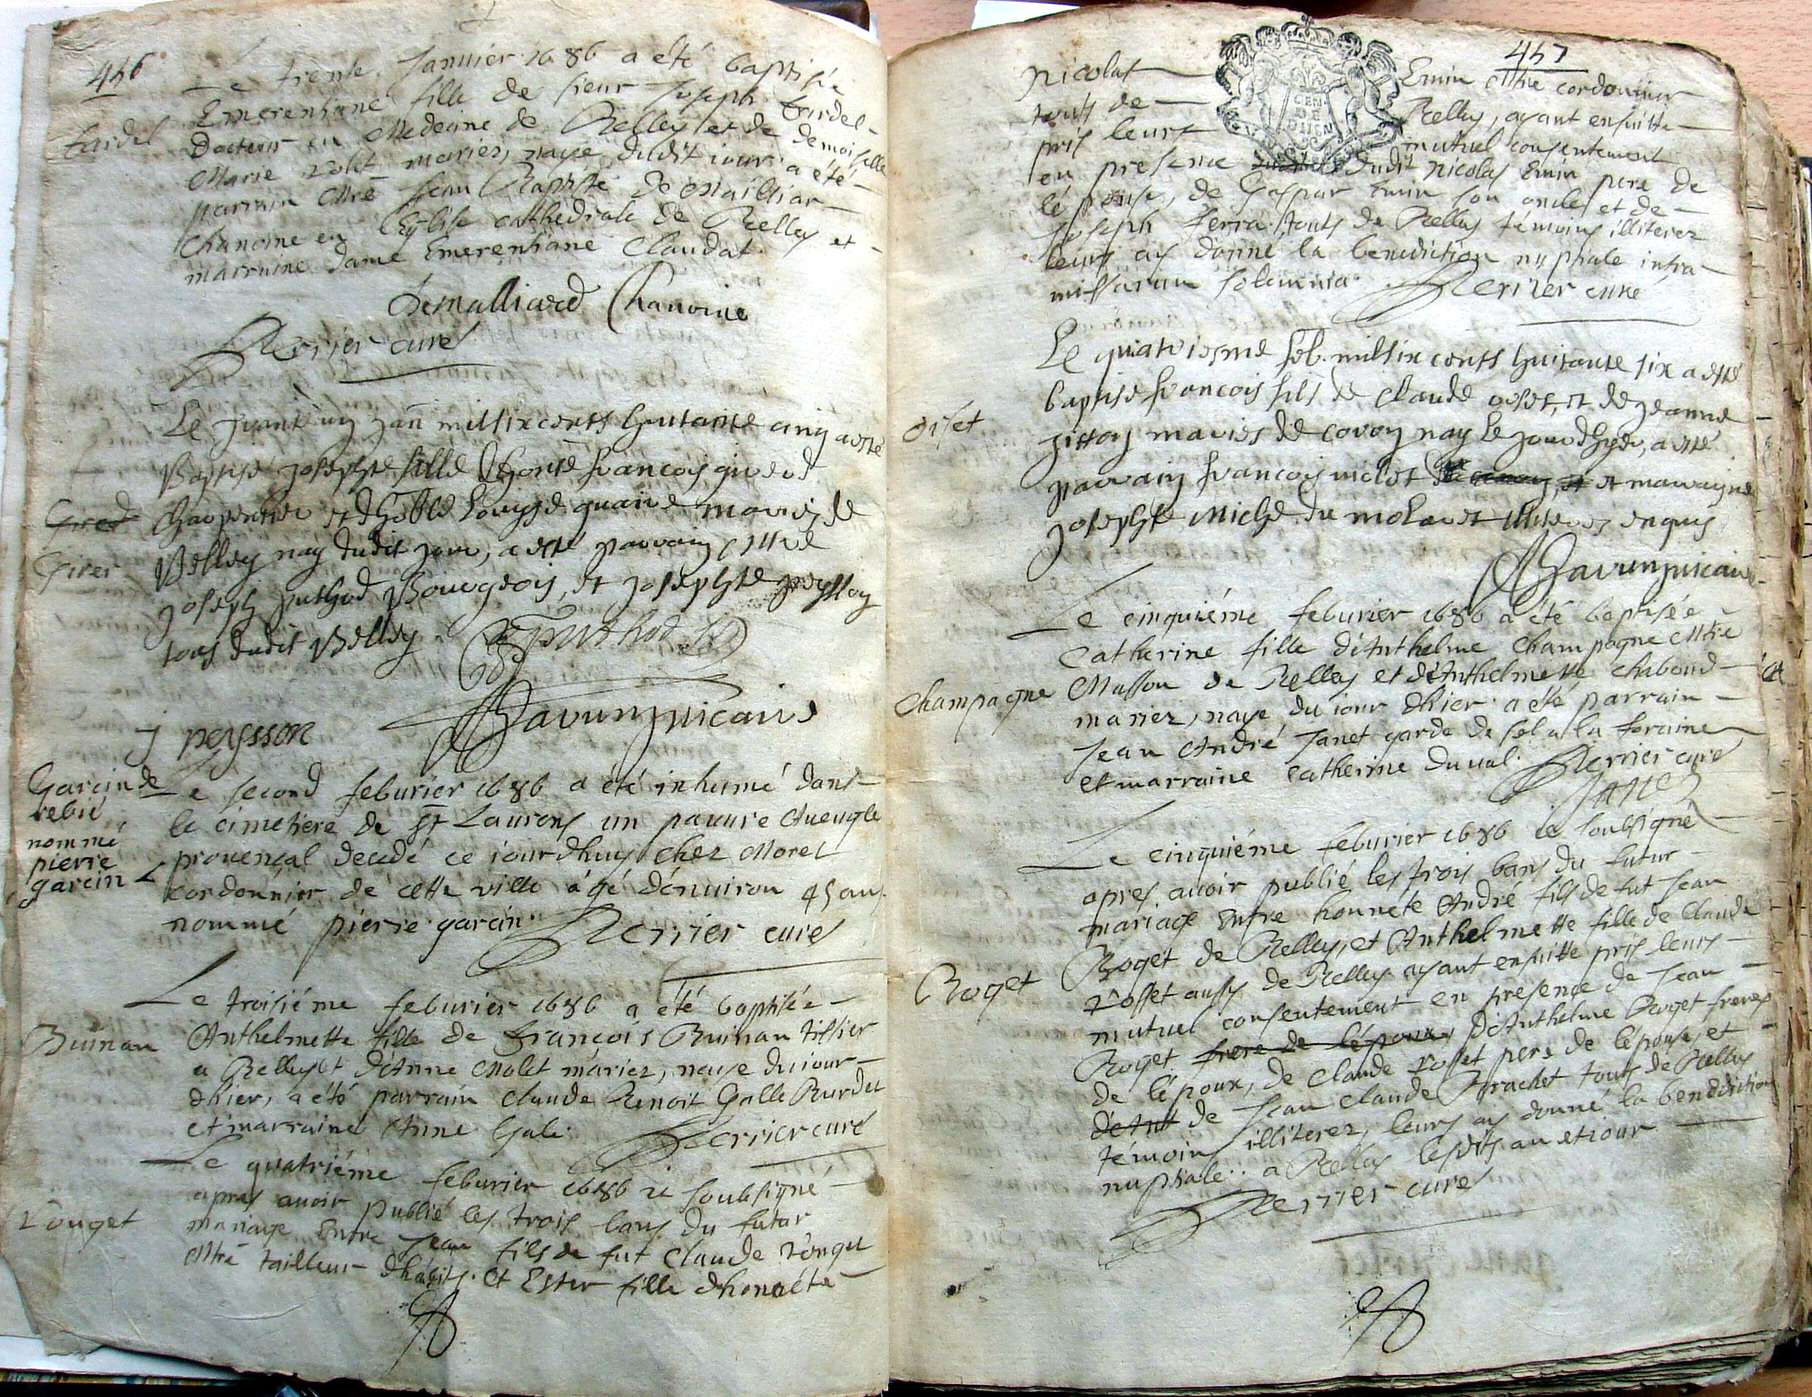 446
Le trente Janvier 1686 a été baptisée
Emerentiane fille de sieur Joseph Tardel
Tardel
Docteur en Medecine de Belley et de demoiselle
Marie mariez, naye dudit iour a été
parrain Mre Jean Baptiste de Mailliar
Chanoine en l'Eglise cathedrale de Belley et
marraine dame Emerentiane Claudat
Demalliard Chanoine
Perrier curé
Le trante un jan milsixcents huitante cinq a esté
Baptisé josephte fille d'honte francois
Charpentier et d'hoble mariés de
Girer
Belley nay dudit jour, a esté parrain Mre
joseph puthod Bourgeois, et josephte peysson
tous dudit Belley
puthod
j peysson
Garcin de
rebie
nommé
pierre
garcin
Le second feburier 1686 a été inhumé dans
le cimetiere de St Laurens un pauure Aueugle
prouençal decedé ce iourdhuy chez Moret
cordonnier de cette ville âgé d'enuiron 45 ans
nommé pierre garcin Perrier curé
Le troisiéme feburier 1686 a été baptisée
Anthelmette fille de François Buinan tissier
Buinan
a Belley et d'Anne Molet mariez, naye du iour
dhier, a été parrain Claude Benoit Galle Burdet
et marraine Anne Gale Perrier curé
Le quatriéme feburier 1686 ie soubsigné
apres auoir publié les trois bans du futur
Vonget
mariage entre Jean fils de fut Claude Vonget
Mtre tailleur d'habits et Ester fille d'honnéte
447
Nicolas Emin Mtre cordonnier
touts de Belley, ayant ensuitte
pris leurs mutuel consentement
GEN
DE
DIION
en presence dudit Nicolas Emin pere de
lépouse, de Gaspar Emin son oncle et de
Joseph Ferra touts de Belley témoins illiterez
leurs ay donné la benediction nuptiale intra
missarum solemnia Perrier curé
Le quatriesme feb. milsix cents huitante six a esté
baptisé francois fils de Claude oiset, et de jeanne
oiset
pitton mariés de coron nay le jourdhyer, a esté
parrain francois molet et marrayne
josephte Miche du molaret illiteres enquis
Le cinquiéme feburier 1686 a été baptisée
Catherine fille d'Anthelme Champagne Mtre
Champagne
Masson de Belley et d'Anthelmette Chabond
mariez, naye du iour dhier a été parrain
Jean André Janet garde de sel a la foraine
et marraine Catherine duual. Perrier curé
Janet
Le cinquiéme feburier 1686 ie soubsigné
apres auoir publié les trois bans du futur
mariage entre honnete André fils de fut Jean
Roget de Belley, et Anthelmette fille de Claude
Roget
Vosset aussy de Belley ayant ensuitte pris leurs
mutuel consentement en presence de Jean
Roget frere de lépoux d'Anthelme Roget freres
de lépoux, de Claude Vosset pere de lépouse, et
de Jean Claude Brachet touts de Belley
témoins illiterez, leurs ay donné la benediction
nuptiale a Belley lesdits an et iour
Perrier curé